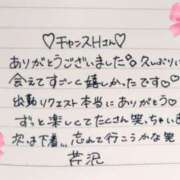 ♡チャンスHさん♡
ありがとうございました。久しぶりに
会えてすごく嬉しかったです♡
出勤リクエスト本当にありがとう♡
ずっと楽しくてたくさん笑っちゃいました
次は下着... 忘れて行こうかな笑
芹沢